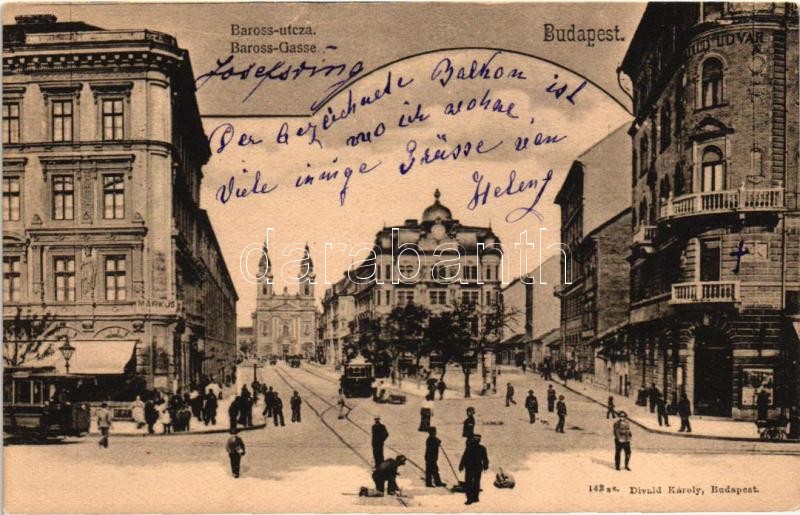 Baross-utcza.
Baross-Gasse
Budapest.
Josefsring
Der bezeichnete Balkon ist
wo ich wohne
Viele innige Grüsse von
Helen
UDVAR
MARKUS
darabanth
Divald Károly, Budapest.